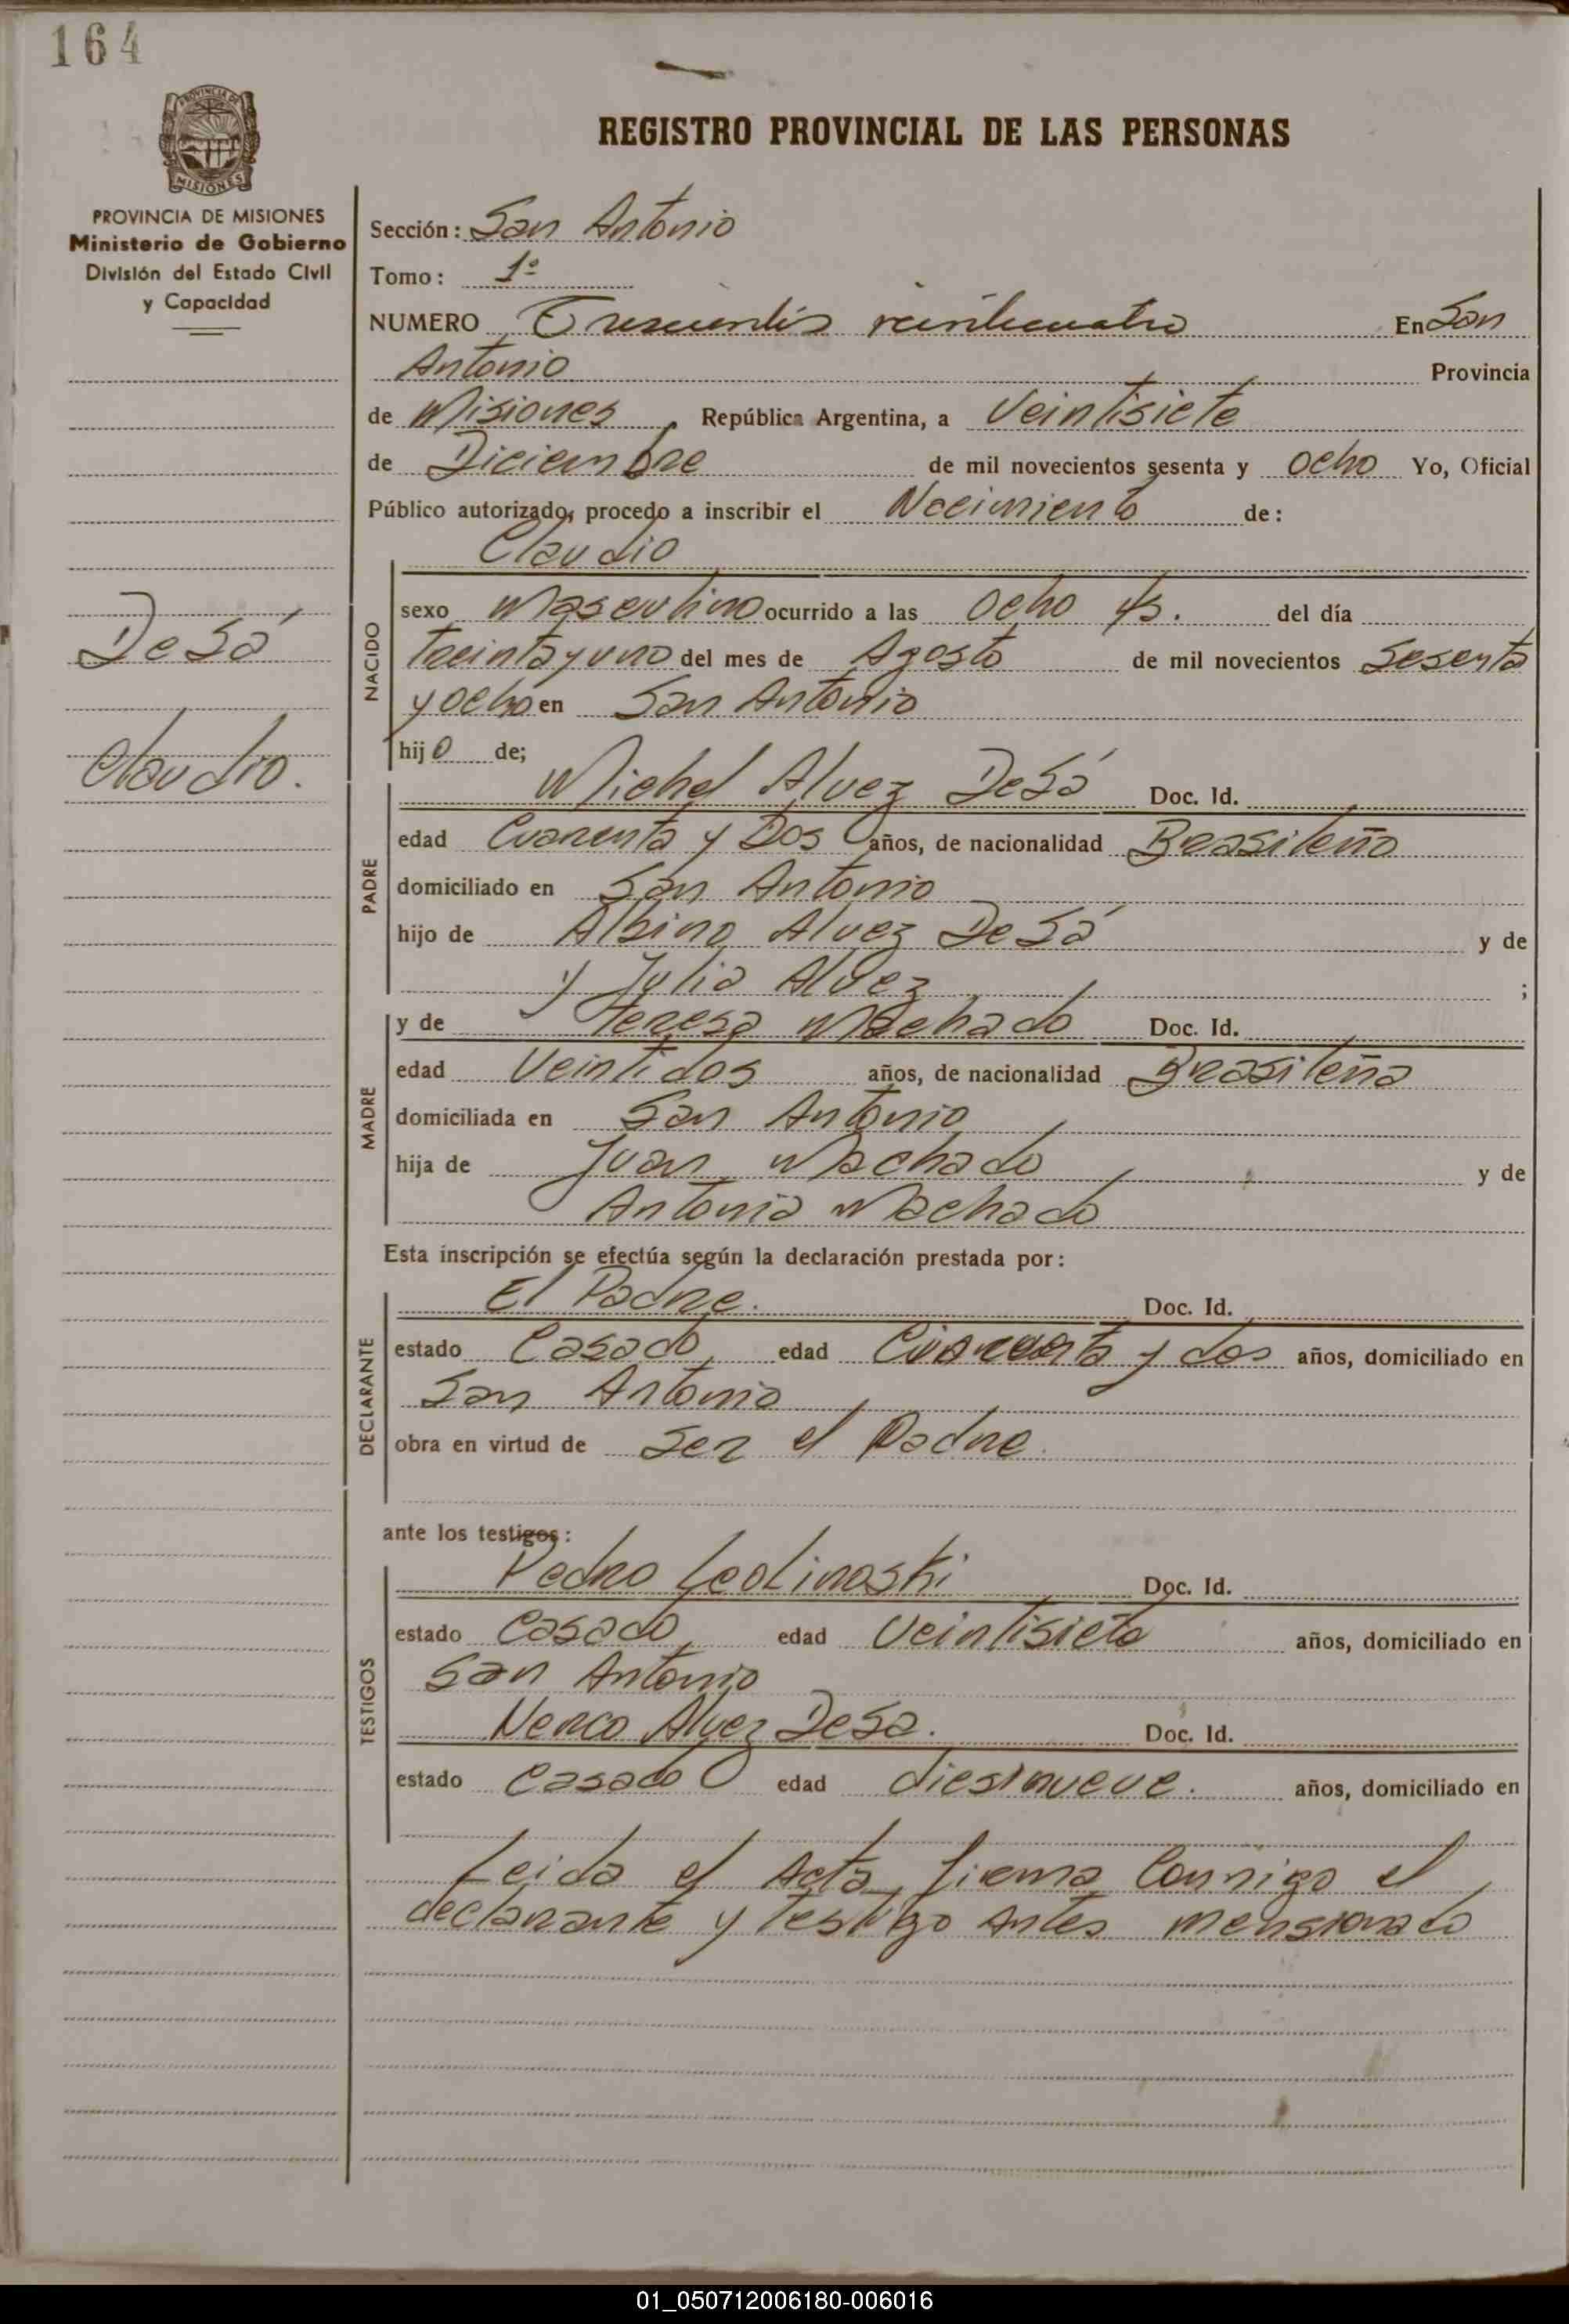 164
PROVINCIA DE
MISIONES
PROVINCIA DE MISIONES
Ministerio de Gobierno
División del Estado Civil
y Capacidad
DeSá
Claudio.
REGISTRO PROVINCIAL DE LAS PERSONAS
Sección: San Antonio
Tomo: 1º
NUMERO Trescientos veinticuatro En San
Antonio Provincia
de Misiones, República Argentina, a Veintisiete
de Diciembre de mil novecientos sesenta y Ocho Yo, Oficial
Público autorizado, procedo a inscribir el Nacimiento de:
Claudio
NACIDO
sexo Masculino ocurrido a las Ocho Hs. del día
Treinta y uno del mes de Agosto de mil novecientos Sesenta
y Ocho en San Antonio
hijo de;
PADRE
Michel Alvez DeSá Doc. Id.
edad Cuarenta y Dos años, de nacionalidad Brasileño
domiciliado en San Antonio
hijo de Albino Alvez De Sá y de
y Julia Alvez ;
MADRE
y de Teresa Machado Doc. Id.
edad Veintidos años, de nacionalidad Brasileña
domiciliada en San Antonio
hija de Juan Machado y de
Antonia Machado
Esta inscripción se efectúa según la declaración prestada por:
DECLARANTE
El Padre. Doc. Id.
estado Casado, edad Cuarenta y dos años, domiciliado en
San Antonio
obra en virtud de Ser el Padre.
ante los testigos:
TESTIGOS
Pedro Doc. Id.
estado Casado, edad Veintisiete años, domiciliado en
San Antonio
Nerco Alvez DeSa. Doc. Id.
estado Casado edad diesinueve. años, domiciliado en
Leida el Acta, firma Conmigo el
declarante y testigo antes mensionado
01_050712006180-006016